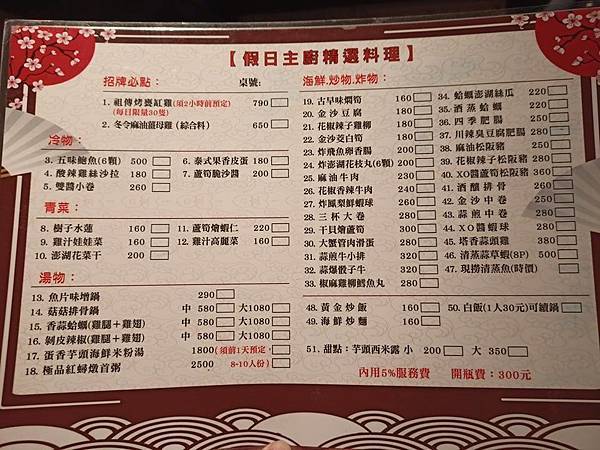 【假日主廚精選料理】
招牌必點： 桌號：
1. 祖傳烤甕缸雞(須2小時前預定) 790
(每日限量30隻)
2. 冬令麻油薑母雞（綜合料） 650
冷物：
3. 五味鮑魚(6顆) 500
4. 酸辣雞絲沙拉 180
5. 雙醬小卷 260
6. 泰式果香皮蛋 180
7. 蘆筍脆沙醬 200
青菜：
8. 樹子水蓮 160
9. 雞汁娃娃菜 160
10. 澎湖花菜干 200
11. 蘆筍燴蝦仁 220
12. 雞汁高麗菜 160
湯物：
13. 魚片味增鍋 290
14. 菇菇排骨鍋 中 580 大1080
15. 香蒜蛤蠣(雞腿＋雞翅) 中 580 大1080
16. 剝皮辣椒(雞腿＋雞翅) 中 580 大1080
17. 蛋香芋頭海鮮米粉湯 1800(須前1天預定，
18. 極品紅蟳燉首粥 2500 8-10人份)
海鮮.炒物.炸物：
19. 古早味燜筍 160
20. 金沙豆腐 180
21. 花椒辣子雞柳 180
22. 金沙茭白筍 180
23. 炸飛魚卵香腸 180
24. 炸澎湖花枝丸(6顆) 240
25. 麻油牛肉 240
26. 花椒香辣牛肉 240
27. 炸鳳梨鮮蝦球 280
28. 三杯大卷 280
29. 干貝燴蘆筍 280
30. 大蟹管肉滑蛋 280
31. 蒜煎牛小排 320
32. 蒜爆骰子牛 320
33. 椒麻雞柳鱈魚丸 240
34. 蛤蠣澎湖絲瓜 220
35. 酒蒸蛤蠣 220
36. 四季肥腸 250
37. 川辣臭豆腐肥腸 280
38. 麻油松阪豬 320
39. 花椒辣子松阪豬 320
40. XO醬蘆筍松阪豬 360
41. 酒釀排骨 250
42. 金沙中卷 280
43. 蒜煎中卷 280
44. XO醬蝦球 280
45. 塔香蒜頭雞 350
46. 清蒸蒜草蝦(8P) 500
47. 現撈清蒸魚(時價)
48. 黃金炒飯 160
49. 海鮮炒麵 160
50. 白飯(1人30元)可續鍋
51. 甜點：芋頭西米露 小 200 大 350
內用5%服務費 開瓶費：300元